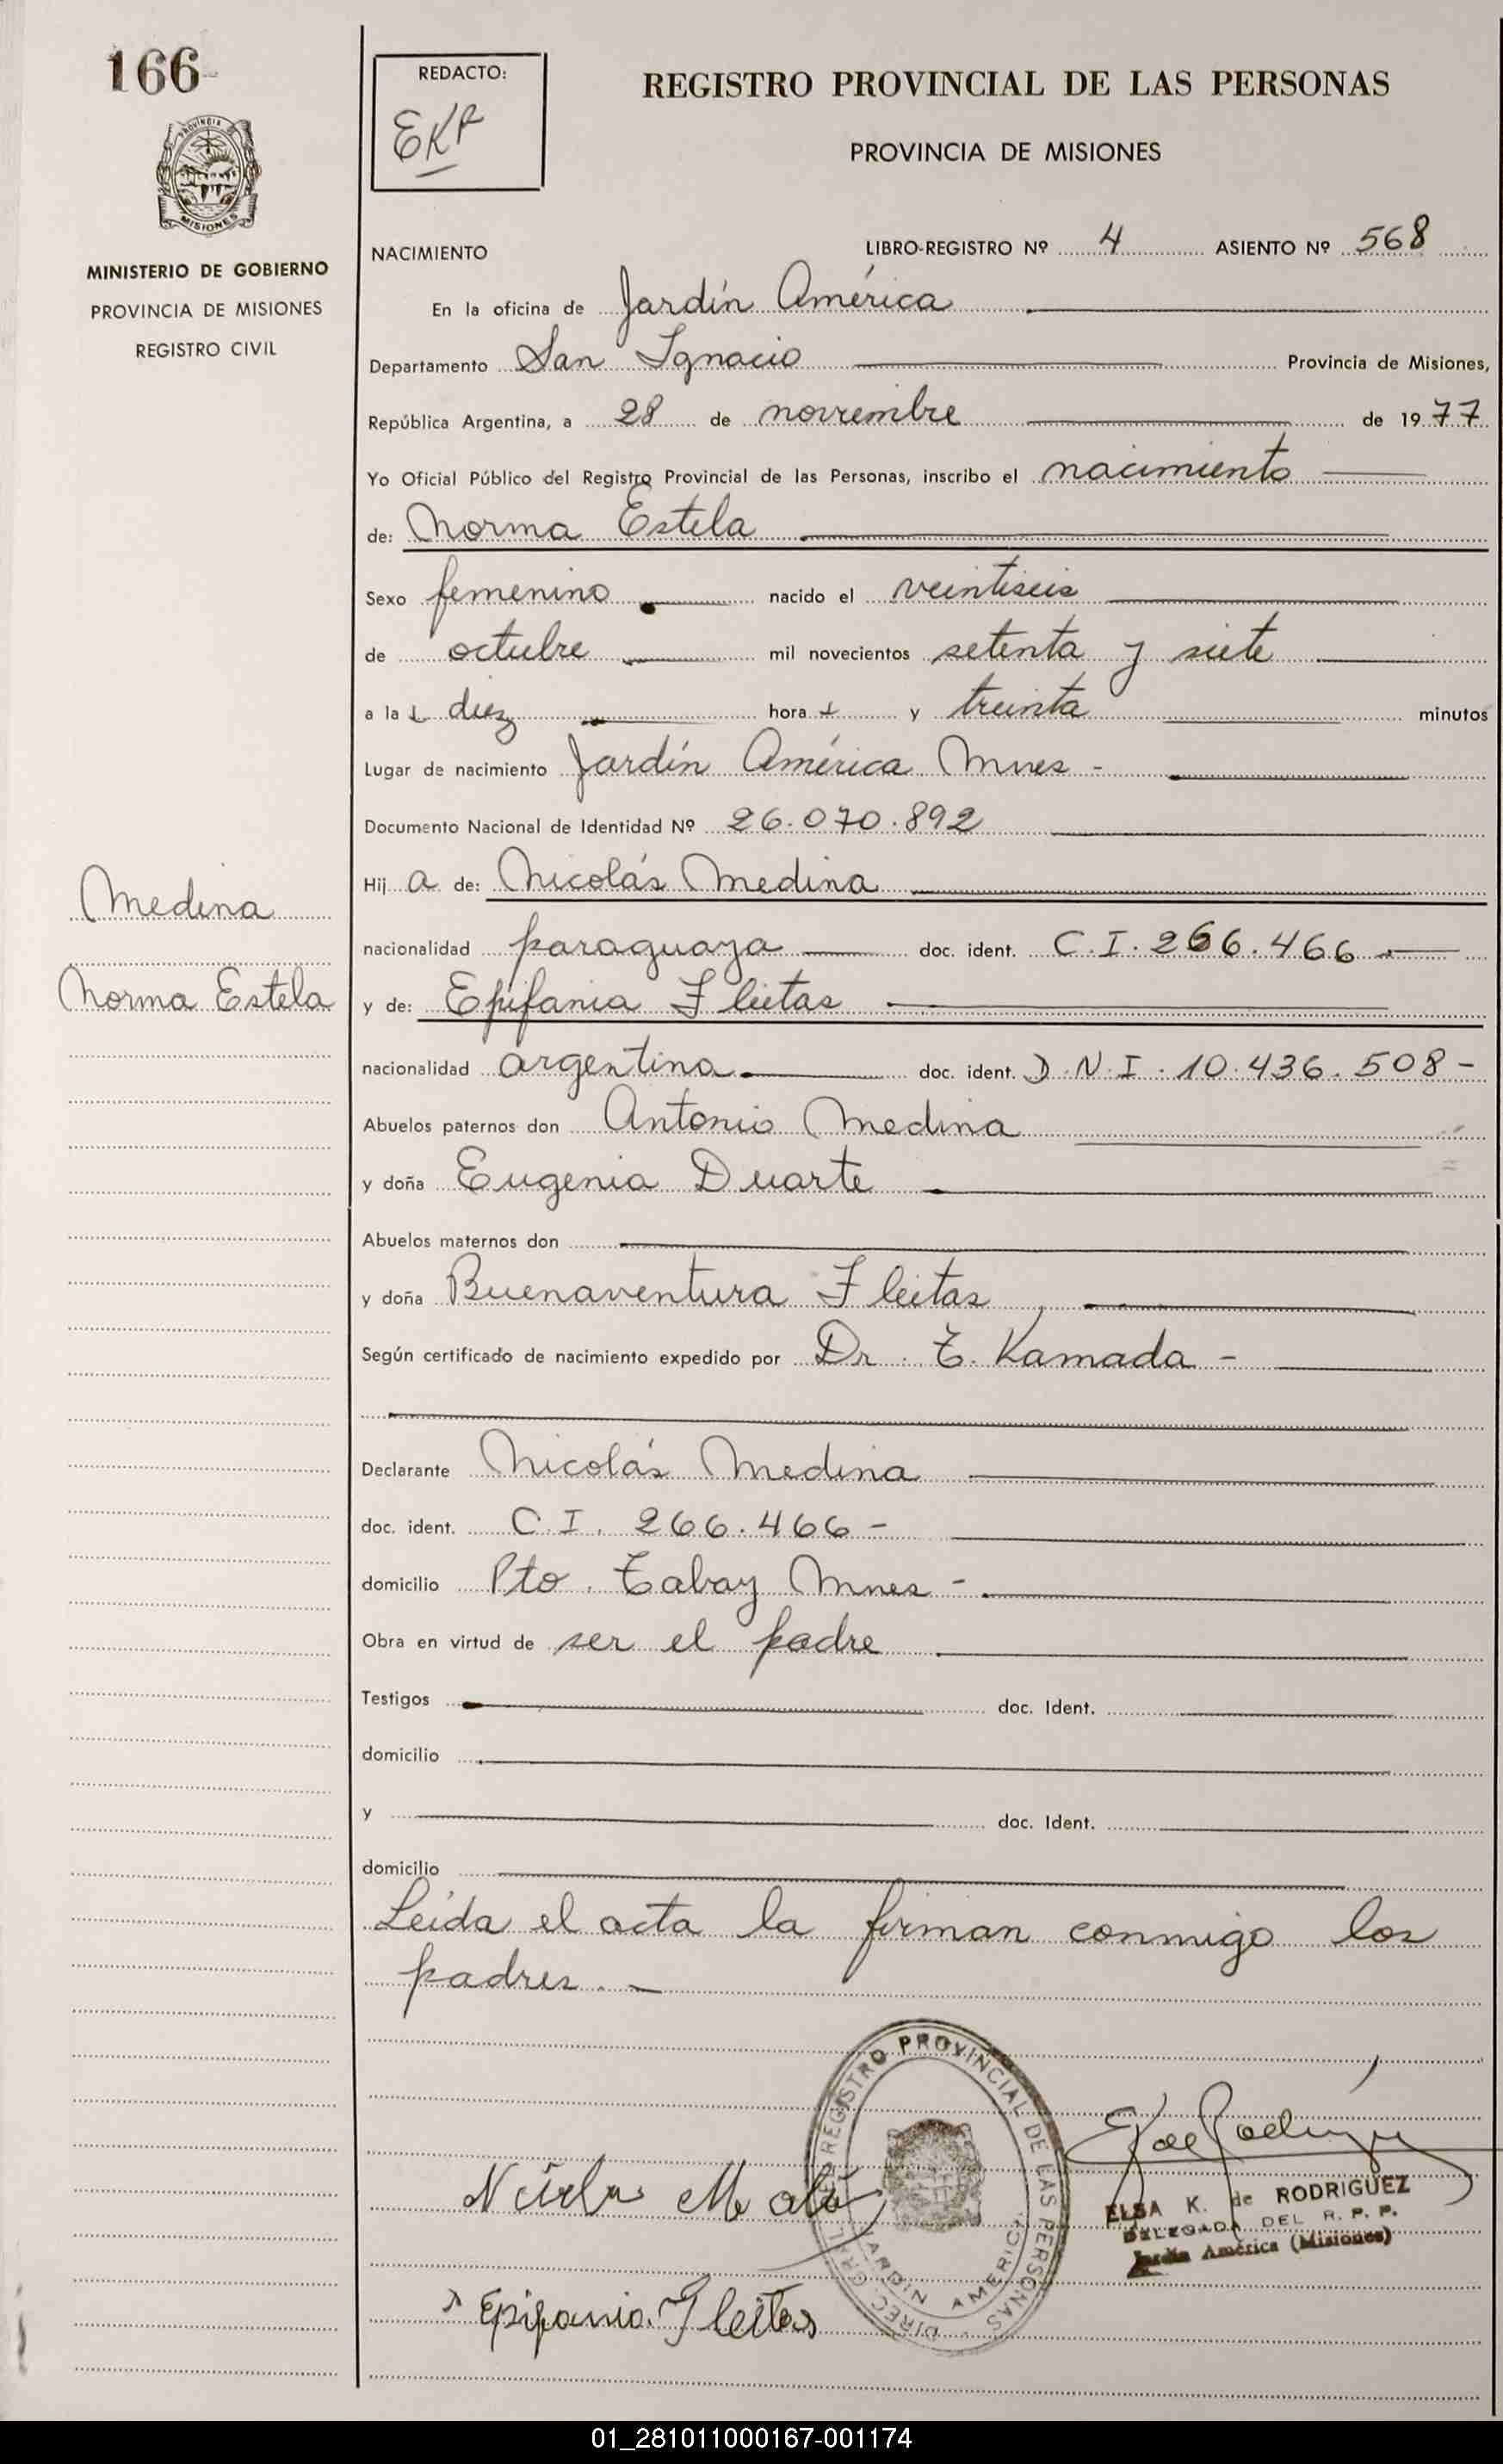 166
PROVINCIA DE
MISIONES
MINISTERIO DE GOBIERNO
PROVINCIA DE MISIONES
REGISTRO CIVIL
REDACTO:
EKR
REGISTRO PROVINCIAL DE LAS PERSONAS
PROVINCIA DE MISIONES
NACIMIENTO LIBRO-REGISTRO Nº 4 ASIENTO Nº 568
En la oficina de Jardín América
Departamento San Ignacio Provincia de Misiones,
República Argentina, a 28 de noviembre de 1977
Yo Oficial Público del Registro Provincial de las Personas, inscribo el nacimiento
de: Norma Estela
Sexo femenino nacido el veintiseis
de octubre mil novecientos setenta y siete
a la s diez hora s y treinta minutos
Lugar de nacimiento Jardín América Mnes -
Documento Nacional de Identidad Nº 26.070.892
Hij a de: Nicolás Medina
Medina
nacionalidad paraguaya doc. ident. C.I. 266.466
Norma Estela
y de: Epifania Fleitas
nacionalidad argentina doc. ident. D.N.I. 10.436.508 -
Abuelos paternos don Antonio Medina
y doña Eugenia Duarte
Abuelos maternos don
y doña Buenaventura Fleitas
Según certificado de nacimiento expedido por Dr. T. Kamada -
Declarante Nicolás Medina
doc. ident. C.I. 266.466 -
domicilio Pto. Tabay Mnes -
Obra en virtud de ser el padre
Testigos doc. Ident.
domicilio
y doc. Ident.
domicilio
Leída el acta la firman conmigo los
padres. -
DIREC. GRAL. REGISTRO PROVINCIAL DE LAS PERSONAS
JARDIN AMERICA
ELSA K. de RODRIGUEZ
DELEGADA DEL R. P. P.
Jardín América (Misiones)
Epifania Fleitas
01_281011000167-001174